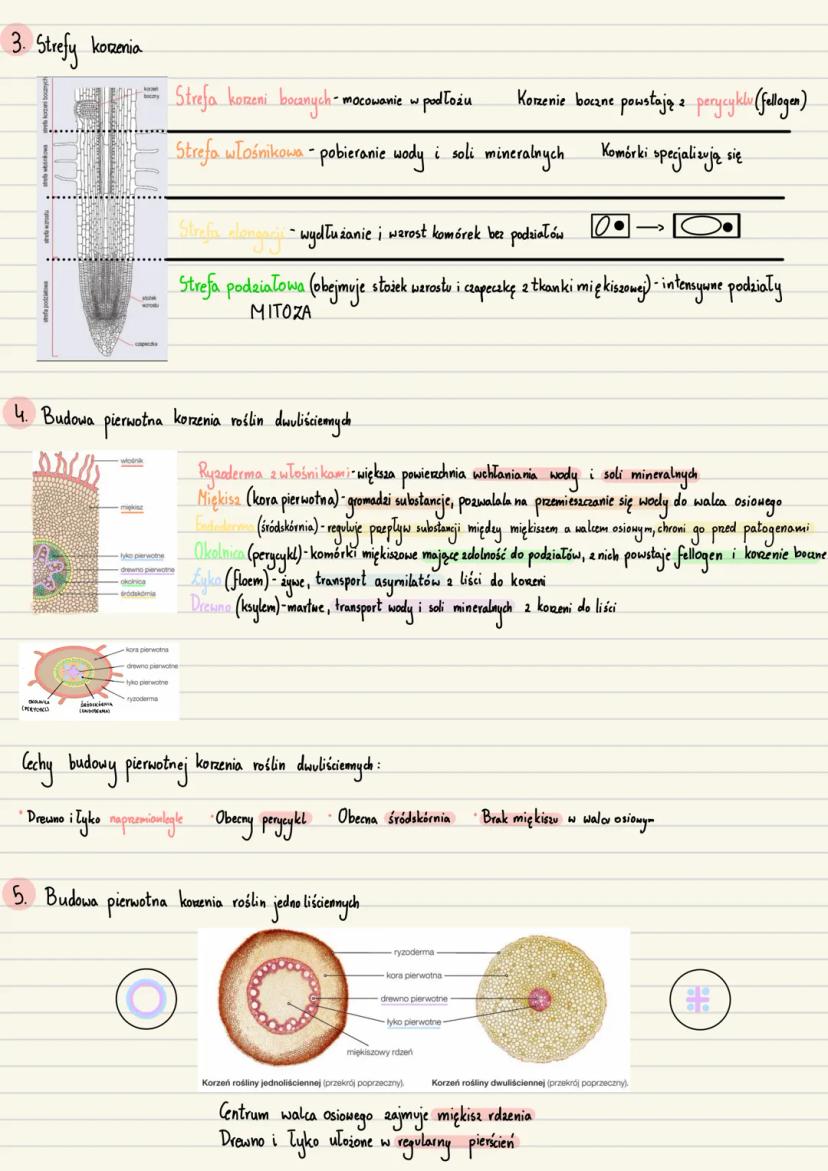 3. Strefy korzenia
strefa korzeni bocznych
strefa włośnikowa
strefa wzrostu
strefa podziałowa
korzeń
boczny
stożek
wzrostu
czapeczka
Strefa korzeni bocznych - mocowanie w podłożu Korzenie boczne powstają z perycyklu (fellogen)
Strefa włośnikowa - pobieranie wody i soli mineralnych Komórki specjalizują się
Strefa elongacji - wydłużanie i wzrost komórek bez podziałów
Strefa podziałowa (obejmuje stożek wzrostu i czapeczkę z tkanki miękiszowej) - intensywne podziały
MITOZA
4. Budowa pierwotna korzenia roślin dwuliściennych
włośnik
miękisz
łyko pierwotne
drewno pierwotne
okolnica
śródskórnia
Ryzoderma z włośnikami - większa powierzchnia wchłaniania wody i soli mineralnych
Miękisz (kora pierwotna) - gromadzi substancje, pozwalala na przemieszczanie się wody do walca osiowego
Endoderma (śródskórnia) - reguluje przepływ substancji między miękiszem a walcem osiowym, chroni go przed patogenami
Okolnica (perycykl) - komórki miękiszowe mające zdolność do podziałów, z nich powstaje fellogen i korzenie boczne
Łyko (floem) - żywe, transport asymilatów z liści do korzeni
Drewno (ksylem) - martwe, transport wody i soli mineralnych z korzeni do liści
kora pierwotna
drewno pierwotne
łyko pierwotne
ryzoderma
OKOLNICA
(PERYCYKL)
ŚRÓDSKÓRNIA
(ENDODERMA)
Cechy budowy pierwotnej korzenia roślin dwuliściennych:
• Drewno i łyko naprzemianległe • Obecny perycykl • Obecna śródskórnia • Brak miękiszu w walcu osiowym
5. Budowa pierwotna korzenia roślin jednoliściennych
ryzoderma
kora pierwotna
drewno pierwotne
łyko pierwotne
miękiszowy rdzeń
Korzeń rośliny jednoliściennej (przekrój poprzeczny). Korzeń rośliny dwuliściennej (przekrój poprzeczny).
Centrum walca osiowego zajmuje miękisz rdzenia
Drewno i łyko ułożone w regularny pierścień